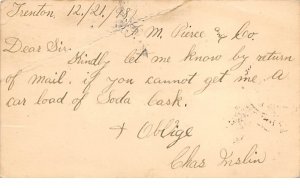 Trenton, 12/21/81
F. M. Pierce & Co.
Dear Sir.
Kindly let me know by return
of mail. if you cannot get me a
car load of Soda Cask.
& Oblige
Chas